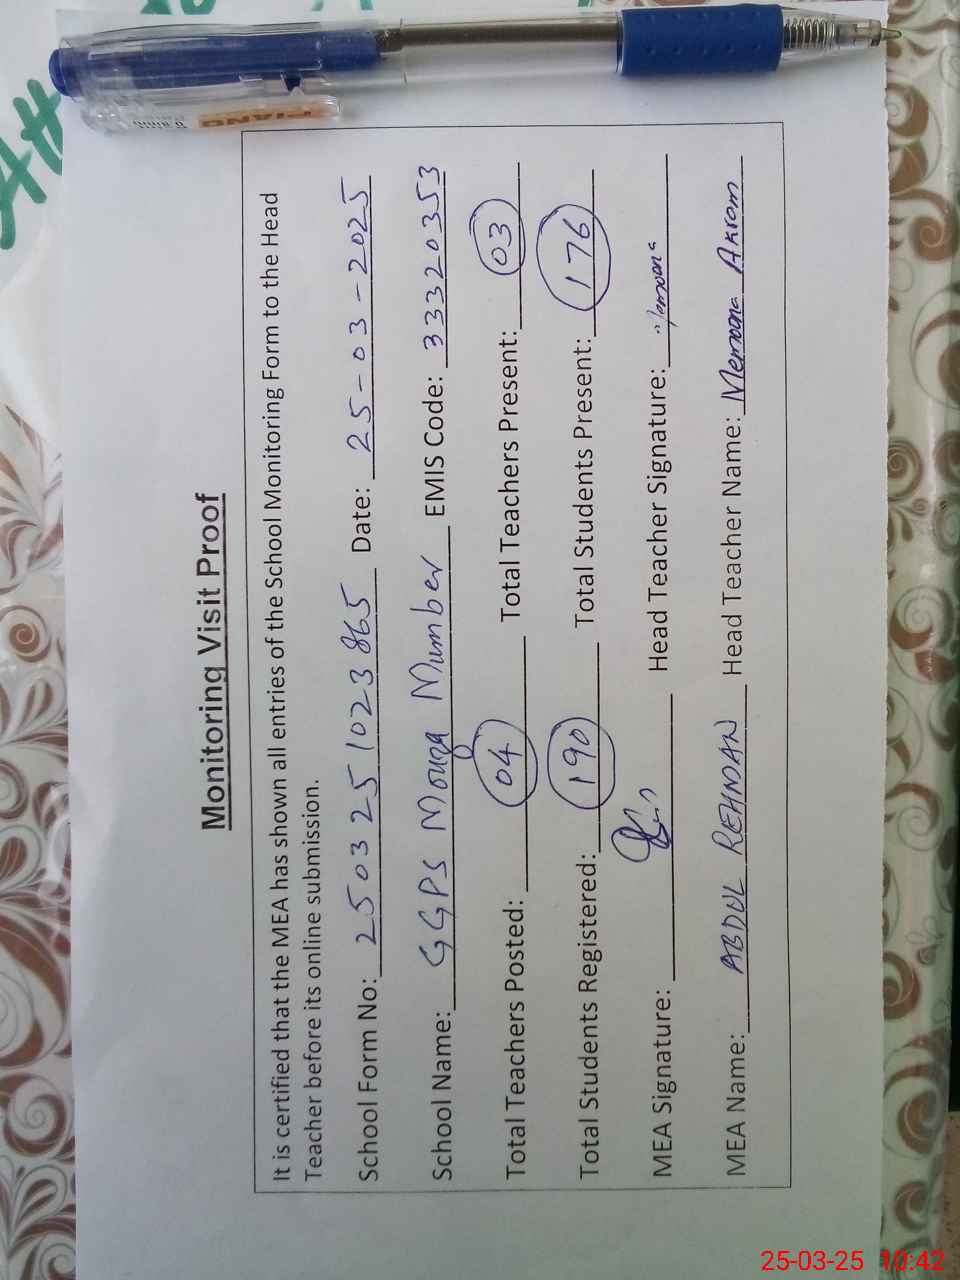 Monitoring Visit Proof
It is certified that the MEA has shown all entries of the School Monitoring Form to the Head
Teacher before its online submission.
School Form No: 250325 1023865 Date: 25-03-2025
School Name: GGPS Mouza Mumber EMIS Code: 33320353
Total Teachers Posted: 04 Total Teachers Present: 03
Total Students Registered: 190 Total Students Present: 176
MEA Signature: Head Teacher Signature:
MEA Name: ABDUL REHMAN Head Teacher Name: Memoona Akram
PIANO
25-03-25 10:42